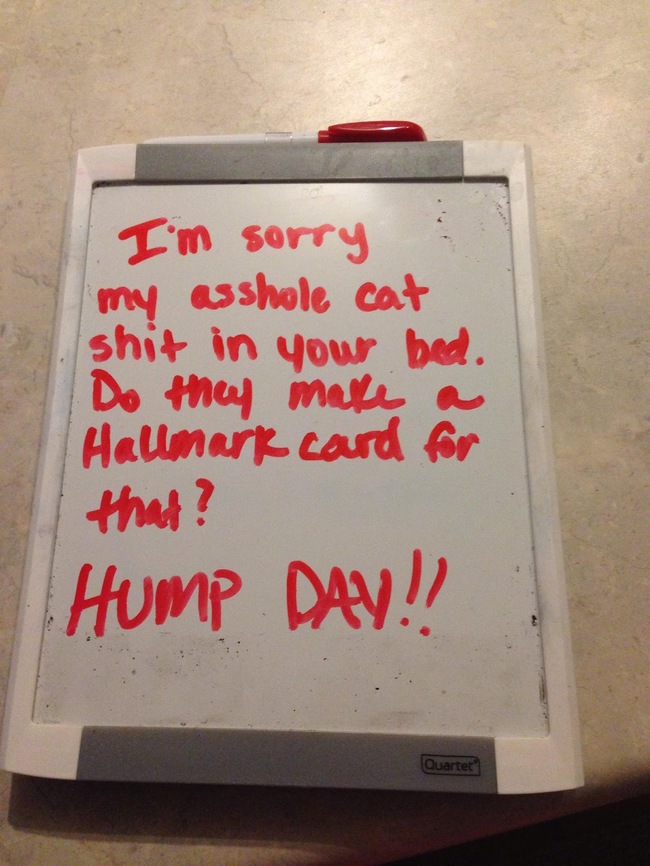 I'm sorry
my asshole cat
shit in your bed.
Do they make a
Hallmark card for
that?
HUMP DAY!!
Quartet®